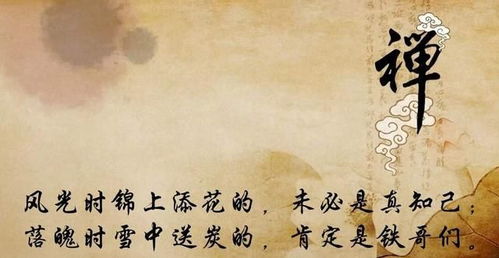 禅
风光时锦上添花的，未必是真知己；
落魄时雪中送炭的，肯定是铁哥们。